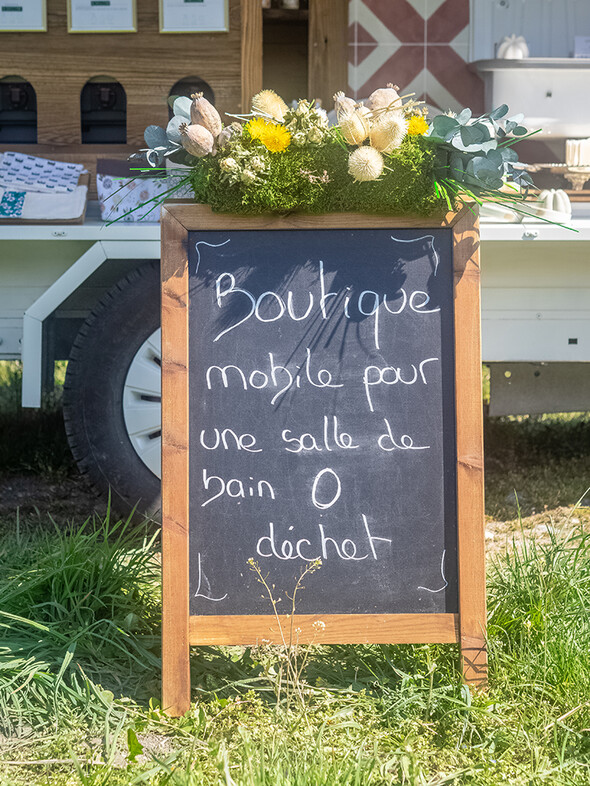 Boutique
mobile pour
une salle de
bain 0
déchet